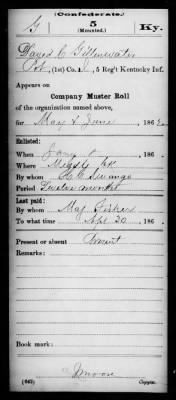 (Confederate.)
G 5 Ky.
(Mounted.)
David C Gillenwater
Pvt, (1st) Co. , 5 Reg't Kentucky Inf.
Appears on
Company Muster Roll
of the organization named above,
for May & June, 186
Enlisted:
When , 186
Where
By whom Swango
Period Twelve months
Last paid:
By whom Maj Fisher
To what time Apl 30, 186
Present or absent Present
Remarks:
Book mark:
J Moore
(642) Copyist.